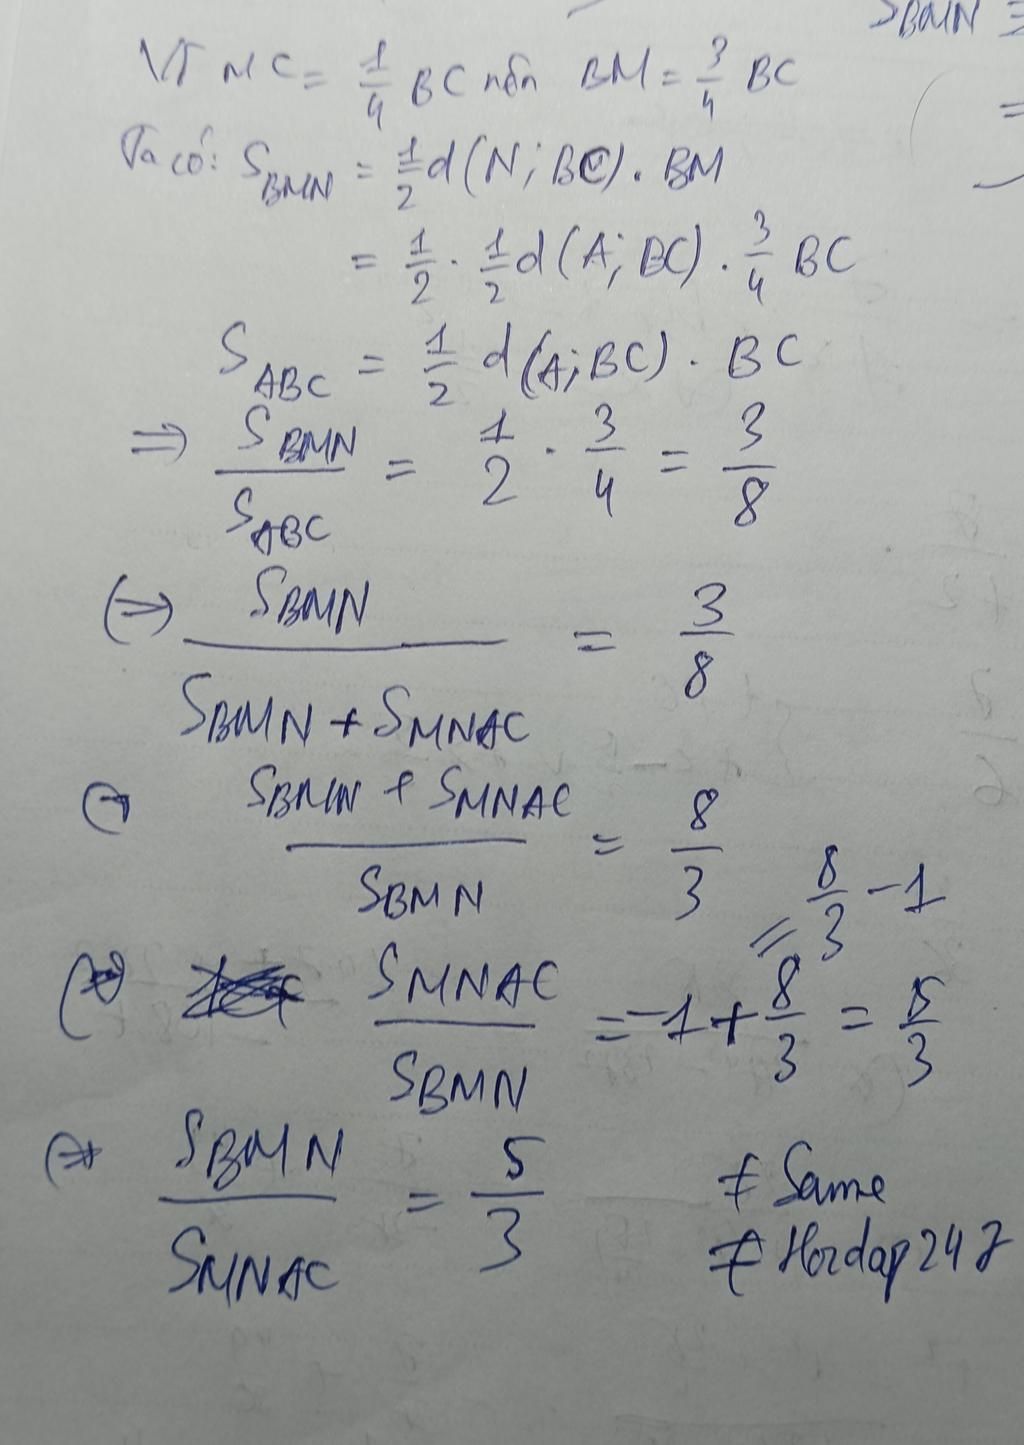 S_BMN =
=
Vì MC = 1/4 BC nên BM = 3/4 BC
Ta có: S_BMN = 1/2 d(N; BC). BM
= 1/2 . 1/2 d(A; BC) . 3/4 BC
S_ABC = 1/2 d(A; BC) . BC
=> S_BMN / S_ABC = 1/2 . 3/4 = 3/8
(=> S_BMN / (S_BMN + S_MNAC) = 3/8
(S_BMN + S_MNAC) / S_BMN = 8/3
= 8/3 - 1
S_MNAC / S_BMN = -1 + 8/3 = 5/3
S_BMN / S_MNAC = 5/3
≠ Same
≠ Hoidap247